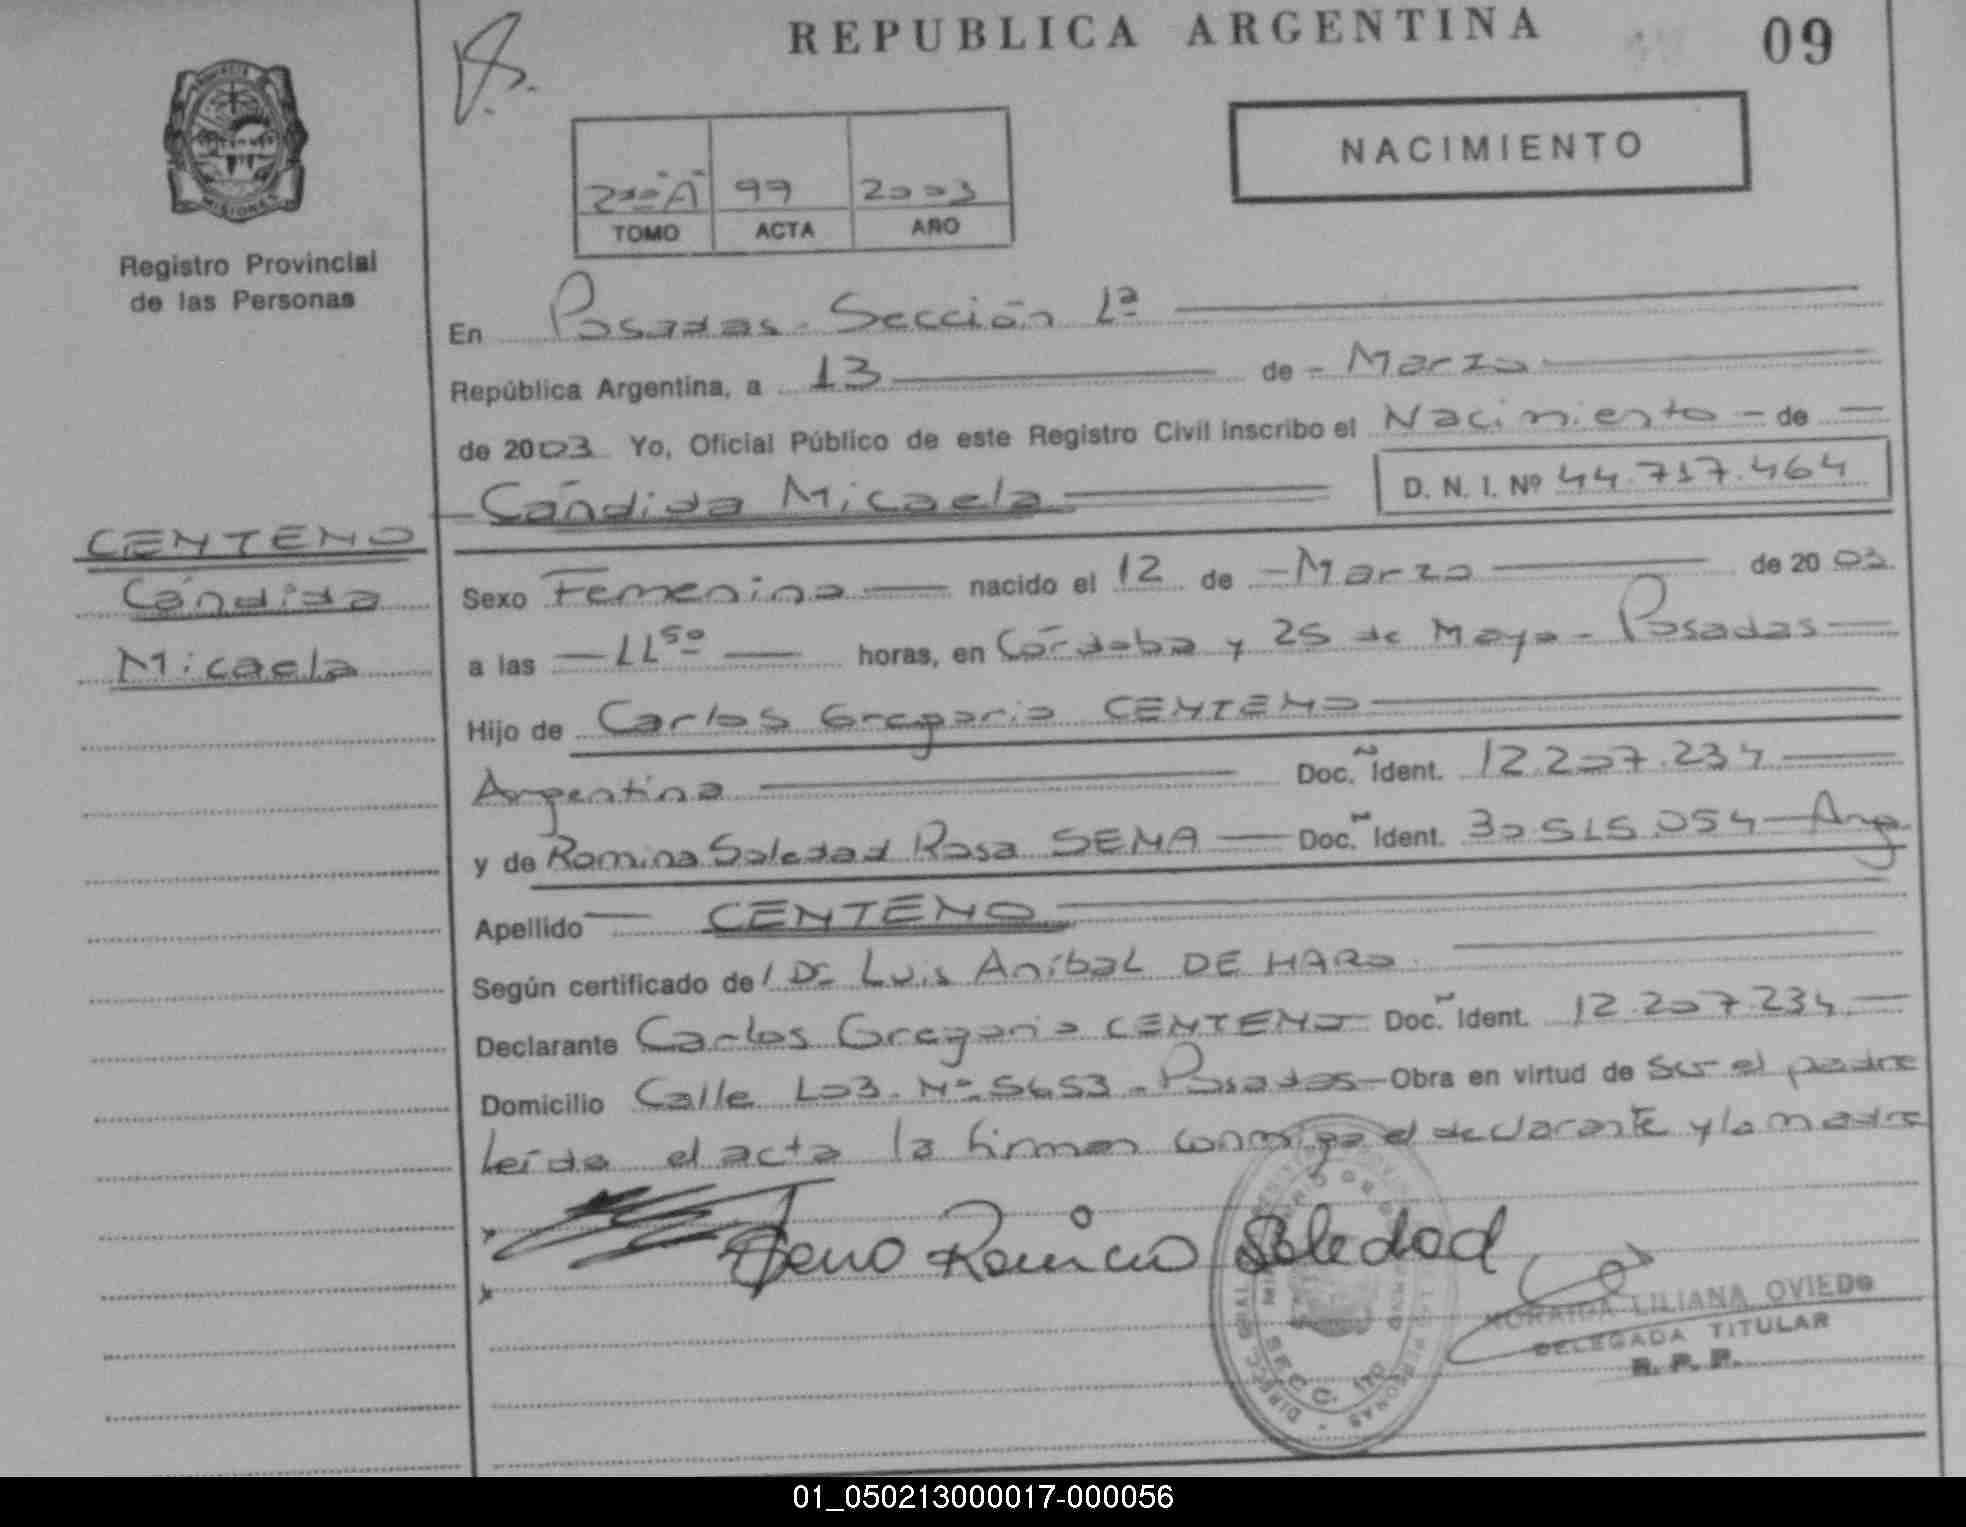 REPUBLICA ARGENTINA
09
PROVINCIA
MISIONES
Registro Provincial
de las Personas
NACIMIENTO
2do "A" 99 2003
TOMO ACTA AÑO
En Posadas - Sección 1ª
República Argentina, a 13 de - Marzo
de 2003 Yo, Oficial Público de este Registro Civil inscribo el Nacimiento - de
Cándida Micaela
D. N. I. Nº 44.717.464
CENTENO
Cándida
Micaela
Sexo Femenino nacido el 12 de - Marzo de 2003
a las - 11 50 - horas, en Córdoba y 25 de Mayo - Posadas
Hijo de Carlos Gregorio CENTENO
Argentino Doc. Ident. 12.207.234
y de Romina Soledad Rosa SENA - Doc. Ident. 30.515.054 - Arg
Apellido CENTENO
Según certificado de / Dr Luis Aníbal DE HARO
Declarante Carlos Gregorio CENTENO Doc. Ident. 12.207.234
Domicilio Calle 103 - Nº 5653 - Posadas - Obra en virtud de ser el padre
Leída el acta la firman conmigo el declarante y la madre
Romina Soledad
SECC. 1ra
LILIANA OVIEDO
DELEGADA TITULAR
R. P. P.
01_050213000017-000056